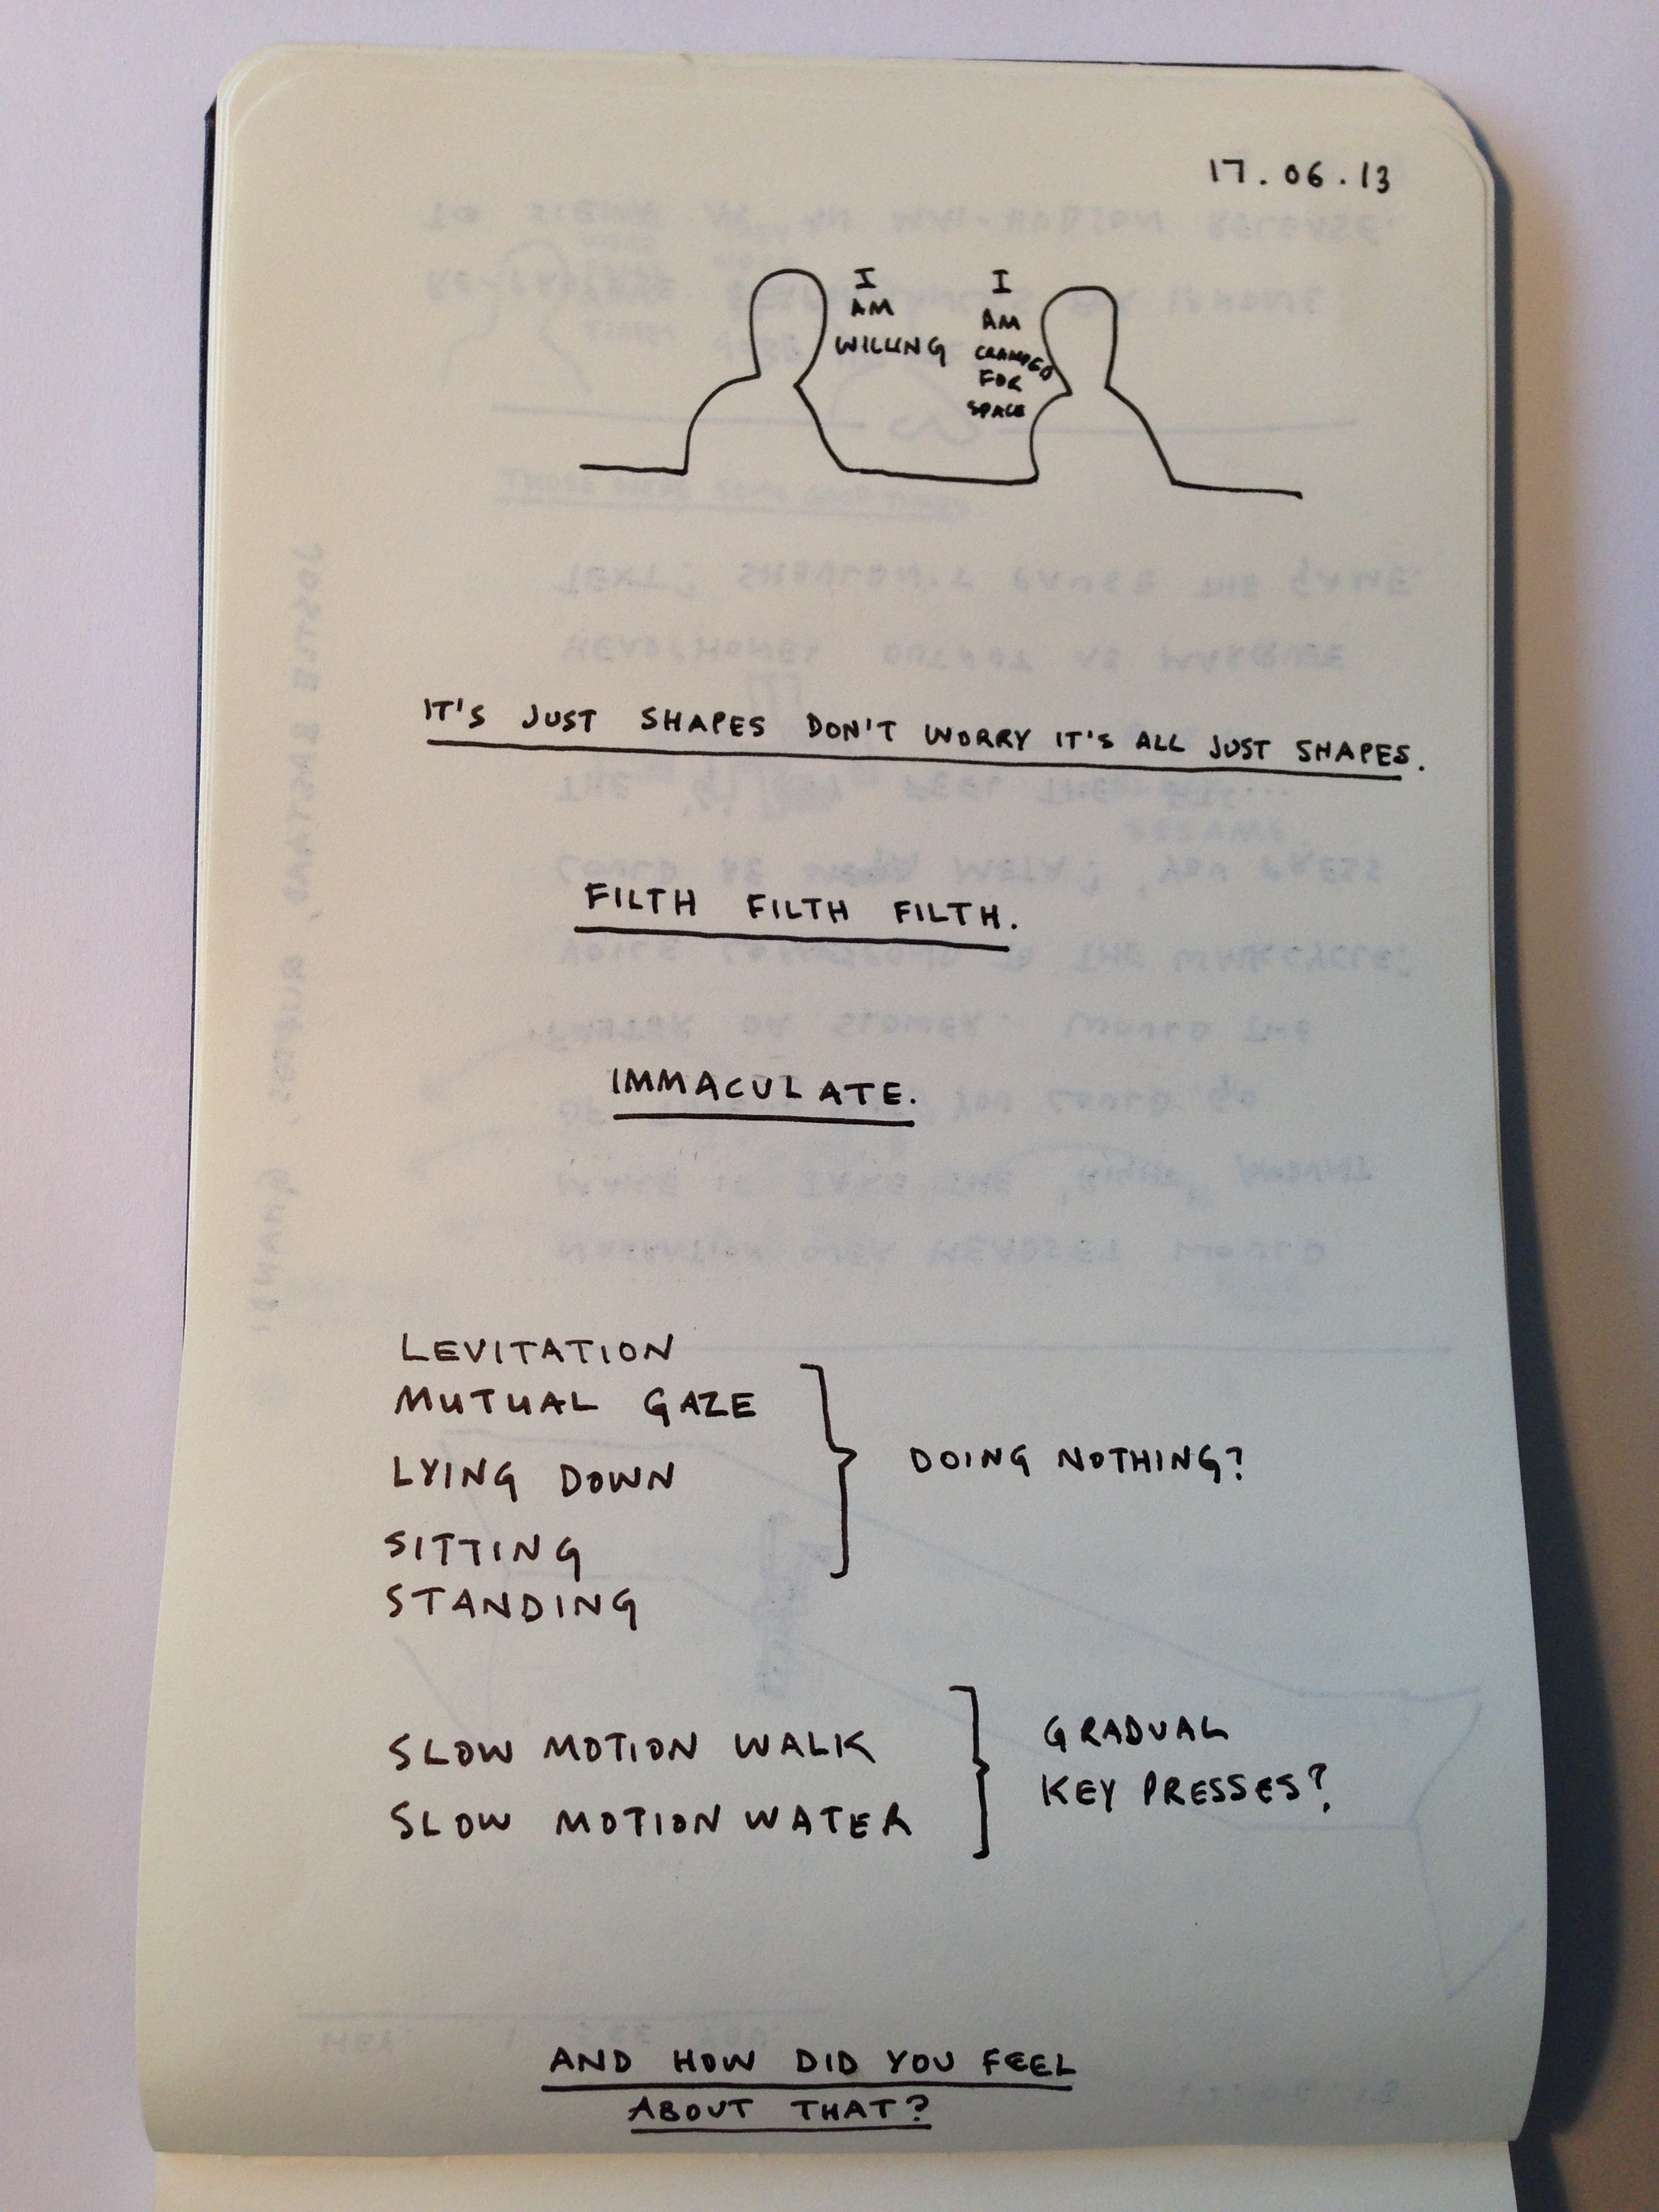 17.06.13
I
AM
WILLING
I
AM
CRAMPED
FOR
SPACE
IT'S JUST SHAPES DON'T WORRY IT'S ALL JUST SHAPES.
FILTH FILTH FILTH.
IMMACULATE.
LEVITATION
MUTUAL GAZE
LYING DOWN
SITTING
STANDING
DOING NOTHING?
SLOW MOTION WALK
SLOW MOTION WATER
GRADUAL
KEY PRESSES?
AND HOW DID YOU FEEL
ABOUT THAT?